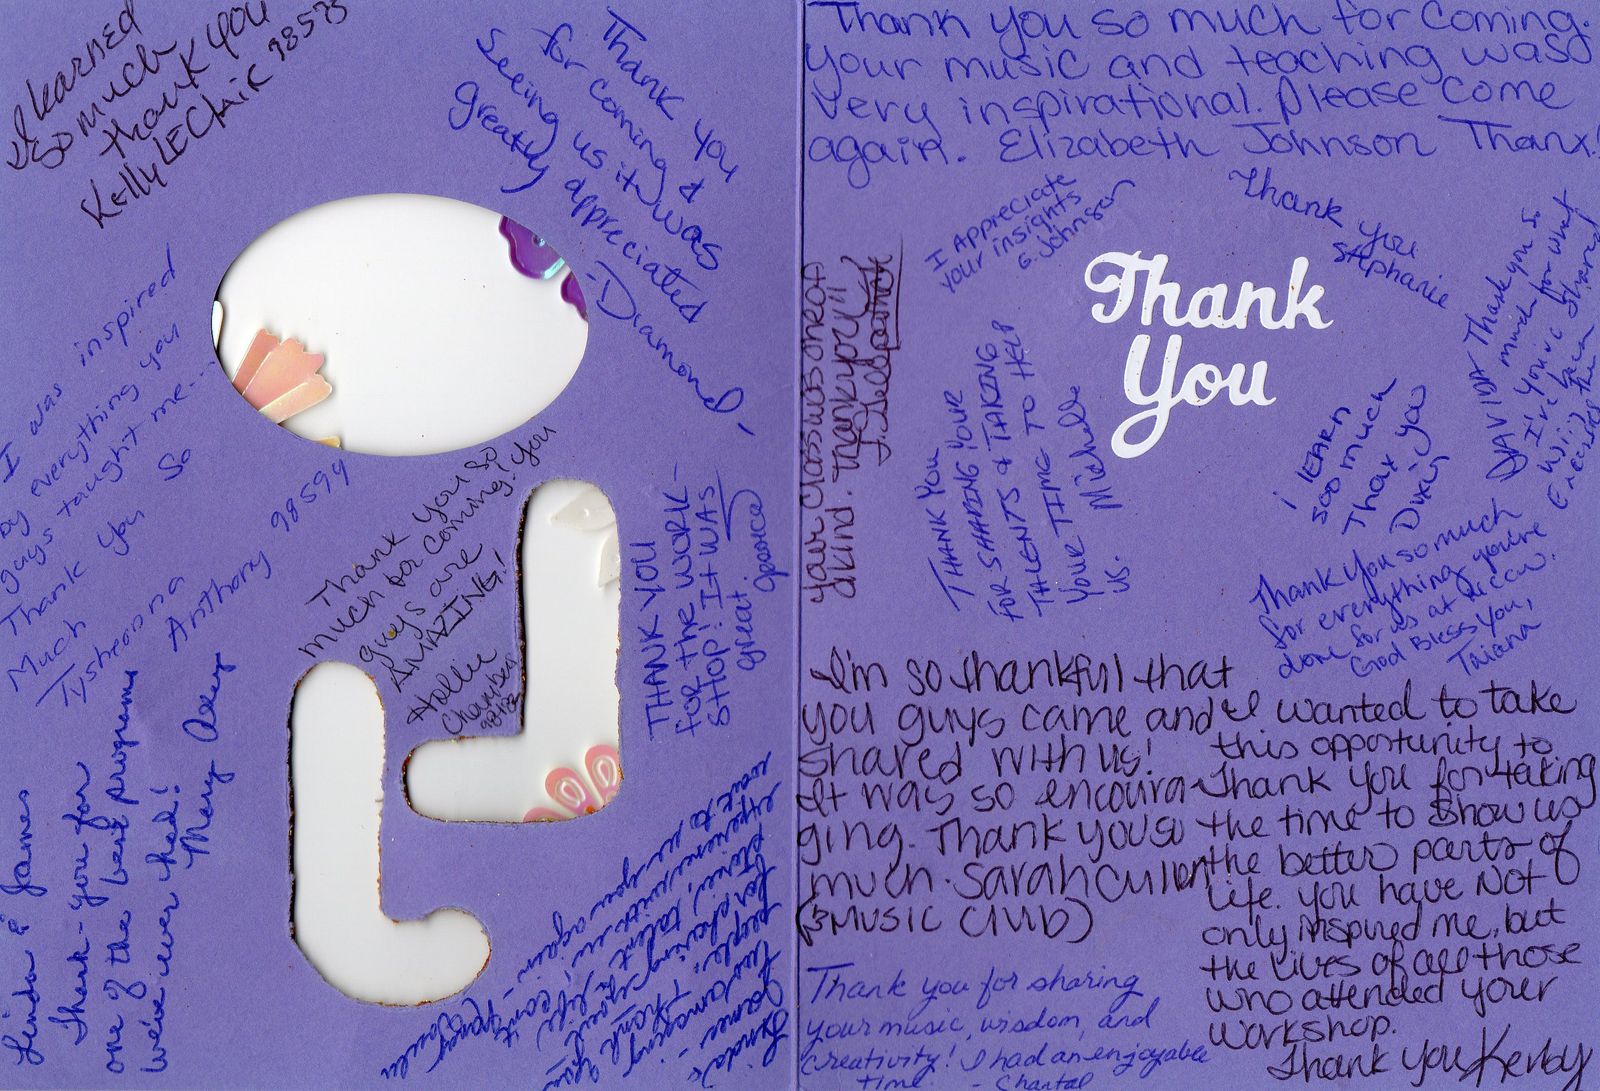 I learned
so much
thank you
Kelly LEClair 98575
Thank you
for coming &
seeing us it was
greatly appreciated
-Diamond
I was inspired
by everything you
guys taught me...
Thank you so
Much
Tysheona
Anthony 98594
Thank you so
much for coming! you
guys are
AMAZING!
Hollie
THANK YOU
FOR THE WORK-
SHOP! IT WAS
great
Linda & James
Thank-you for
one of the best programs
we've ever had!
Mary
Linda &
James -
Two amazing
people. Thank you
for sharing
stories, talent, life
experience with us, can't
wait to see you again -
Thank you so much for coming.
Your music and teaching was
very inspirational. Please come
again. Elizabeth Johnson Thanx!
I Appreciate
your insights
G. Johnson
Thank you
Stephanie
Thank
You
your class was one of
a kind. Thank you!!
THANK YOU
FOR SHARING YOUR
TALENTS & TAKING
YOUR TIME TO HELP
US. Michelle
DAVIDA Thank you so
much for what
I've you've shared
i lEARN
soo much
Thax you
Thank you so much
for everything you're
done for us at
God Bless You,
Taiana
I'm so thankful that
you guys came and
shared with us!
It was so encoura-
ging. Thank you so
much. Sarah Cullen
(MUSIC ClUB)
I wanted to take
this opportunity to
Thank you for taking
the time to show us
the better parts of
Life. you have NOT
only inspired me, but
the lives of all those
who attended your
workshop.
Thank you Kerby
Thank you for sharing
your music, wisdom, and
creativity! I had an enjoyable
time. - Chantal